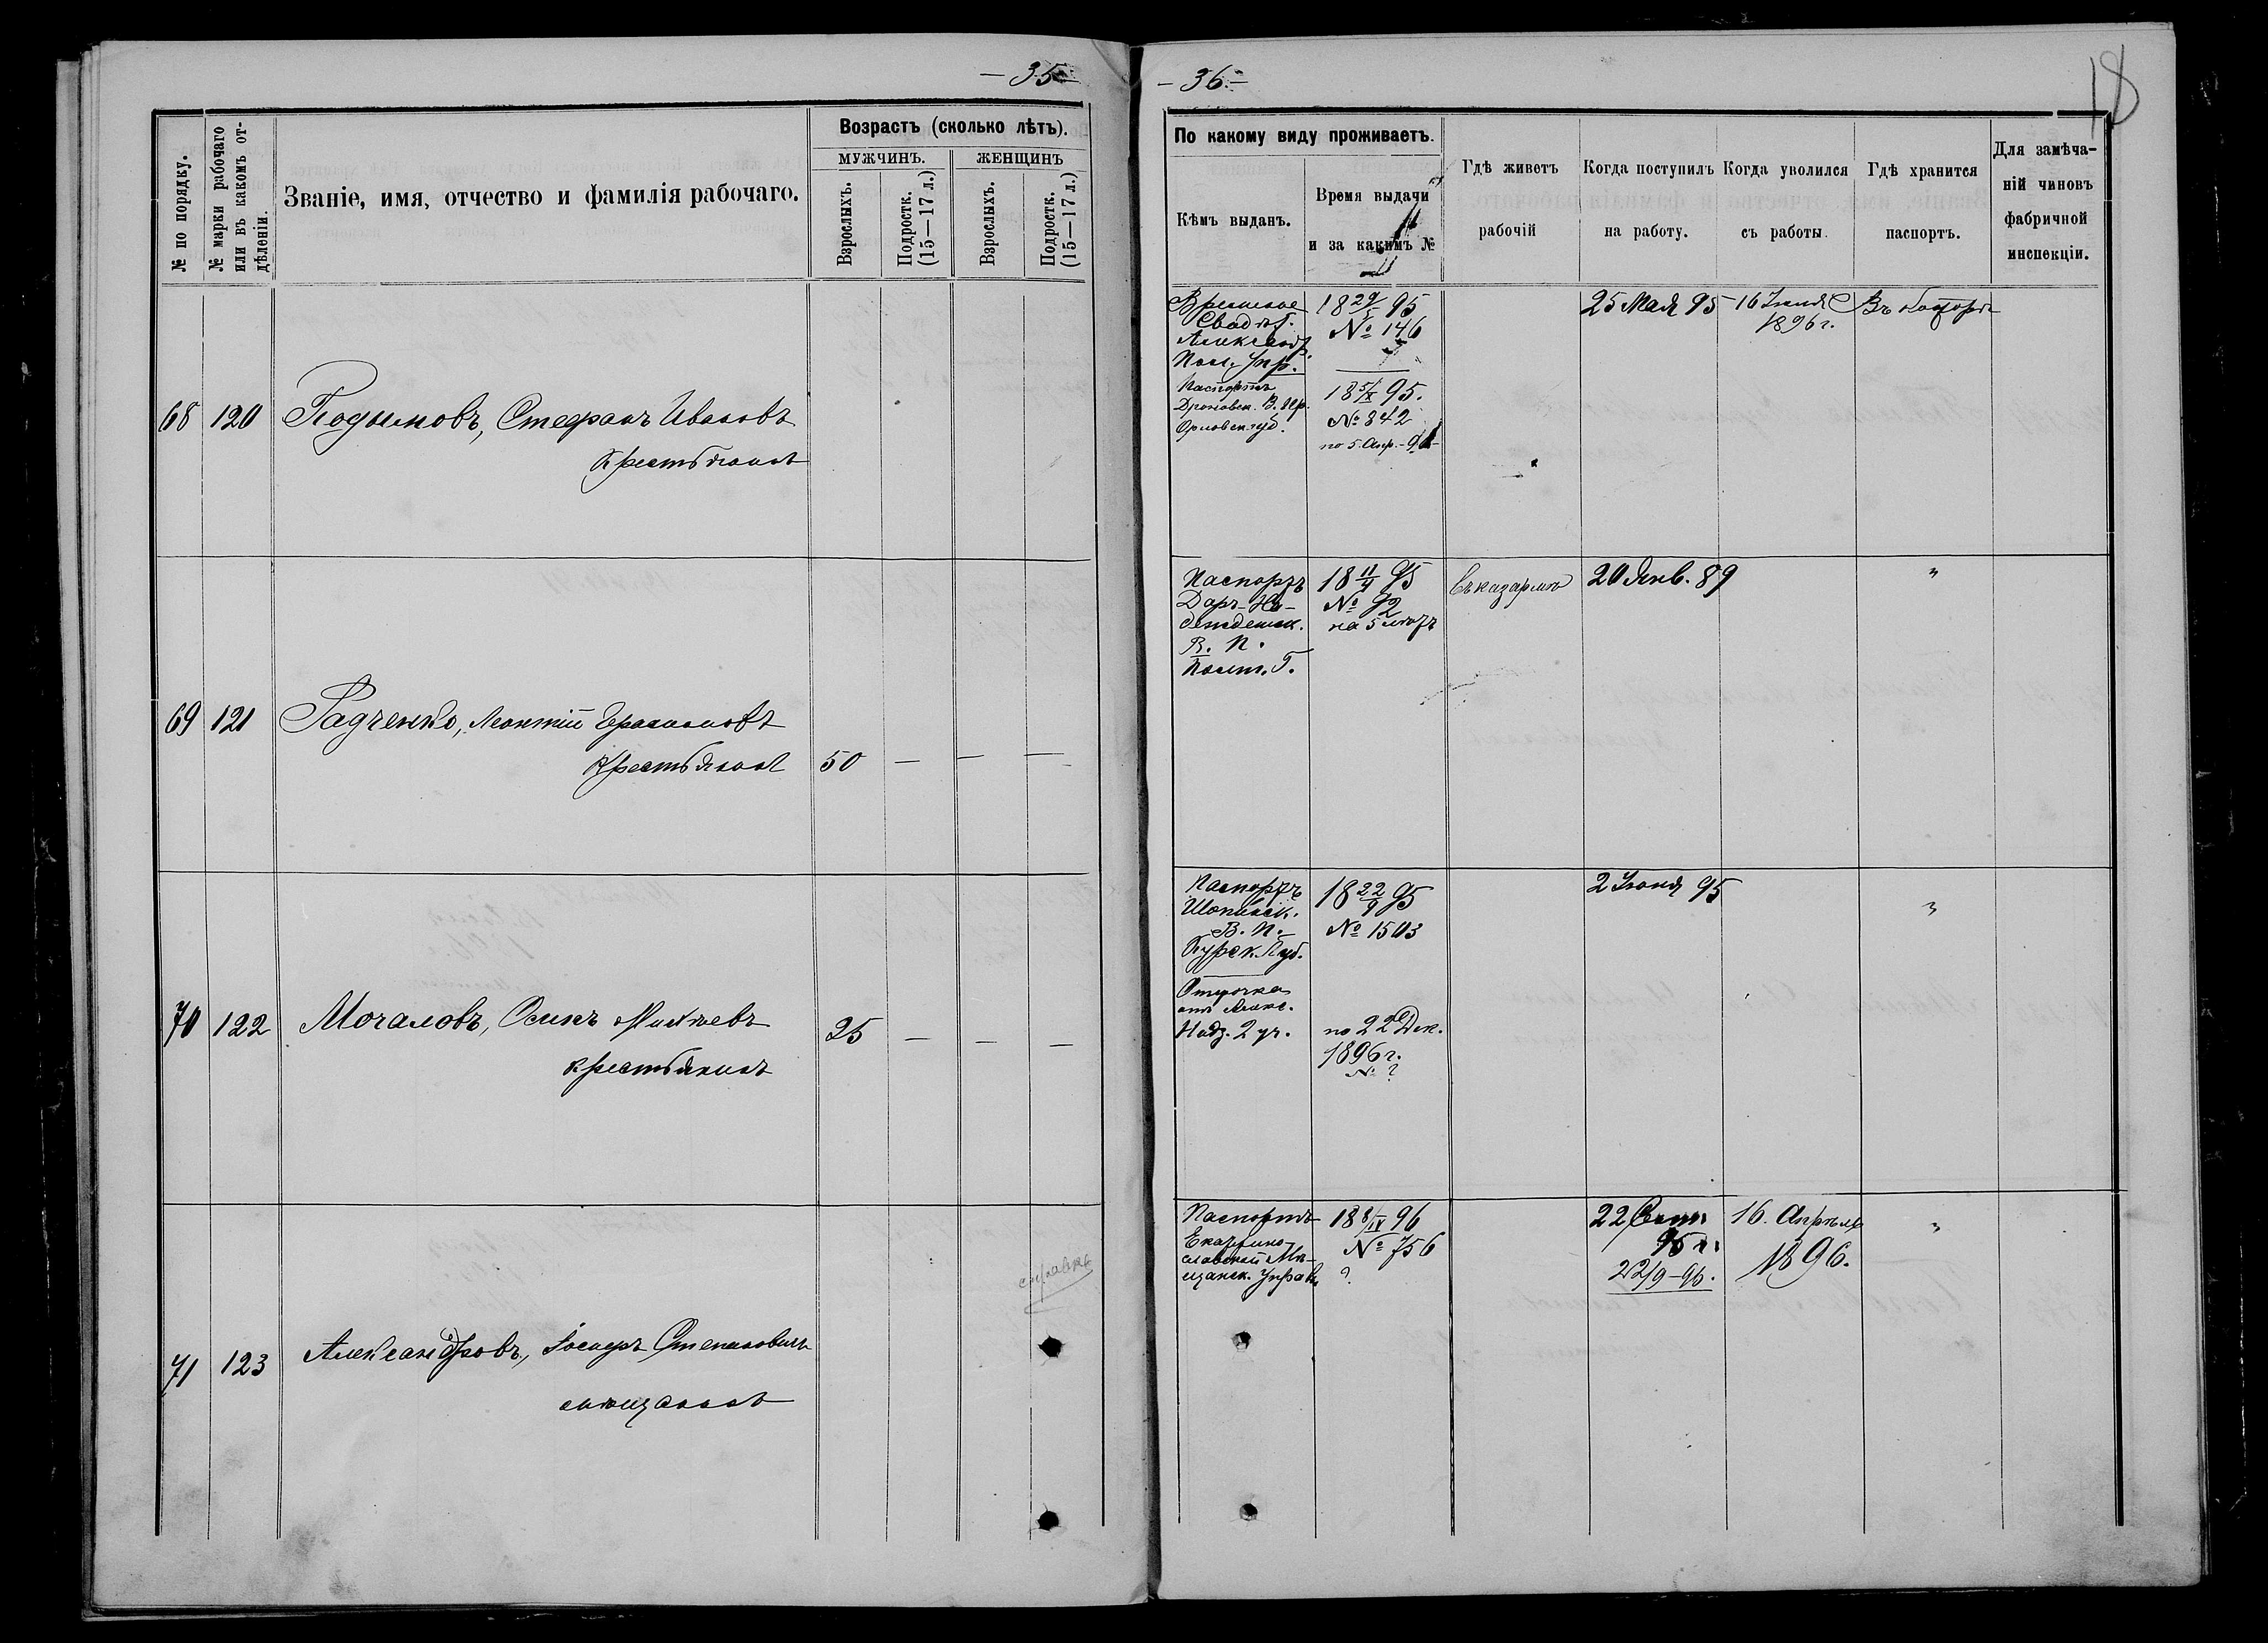 — 35 —
№ по порядку.
№ марки рабочаго или въ какомъ от-дѣленіи.
Званіе, имя, отчество и фамилія рабочаго.
Возрастъ (сколько лѣтъ).
МУЖЧИНЪ.
ЖЕНЩИНЪ
Взрослыхъ.
Подростк. (15—17 л.)
Взрослыхъ.
Подростк. (15—17 л.)
68 120 Подымовъ, Стефанъ Ивановъ
крестьянинъ
69 121 Радченко, Леонтій Герасимовъ
крестьянинъ 50 — — —
70 122 Мочаловъ, Осипъ
25 — — —
крестьянинъ
справка
71 123 Александровъ, Іосифъ Степановичъ
мѣщанинъ
— 36 —
18
По какому виду проживаетъ.
Кѣмъ выданъ.
Время выдачи
и за какимъ №
Гдѣ живетъ
рабочій
Когда поступилъ
на работу.
Когда уволился
съ работы.
Гдѣ хранится
паспортъ.
Для замѣча-
ній чиновъ
фабричной
инспекціи.
Временное
Свидѣт.
Александр.
Полиц. Упр.
18 29/5 95
№ 146
Паспортъ
В. Пр.
Орловск. губ.
18 5/X 95.
№ 842
по 5. Апр.
25 Мая 95
16 Іюня
1896 г.
Въ конторѣ
Паспортъ
Дар-На-
деждинск.
В. П.
Полт. Г.
18 11/9 95
№ 92
на 5 лѣтъ
Въ казармѣ
20 Янв. 89
"
Паспортъ
В. П.
Курск. Губ.
18 22/9 95
№ 1503
Отсрочка
отъ Алекс.
Надз. 2 уч.
по 22 Дек.
1896 г.
№ ?
2 Іюня 95
"
Паспортъ
Екатерино-
славской Мѣ-
щанск. Управы
18 8/IV 96
№ 756
?
22 Сент.
95 г.
22/9 – 96.
16. Апрѣля
1896.
"